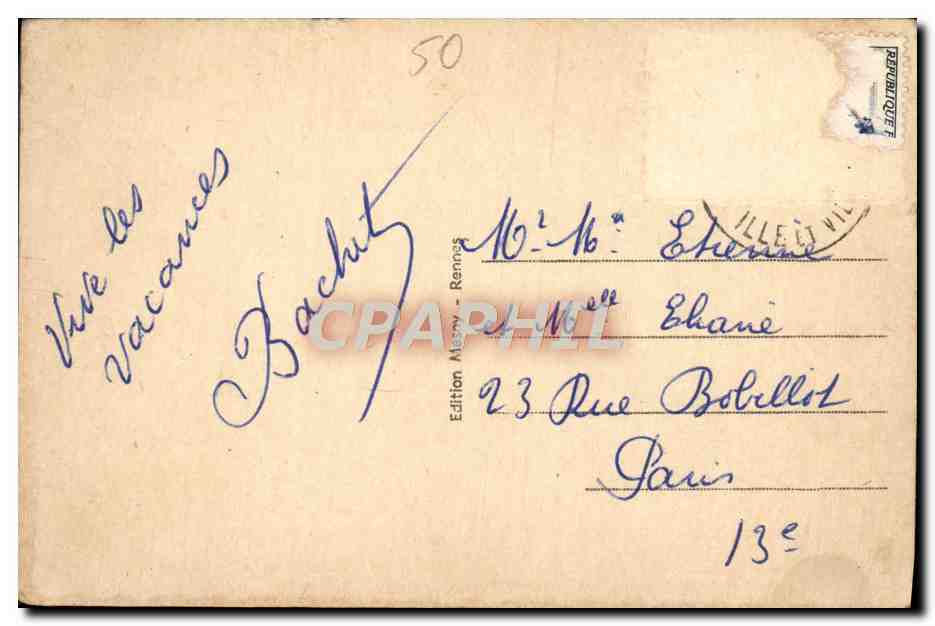 50
Vive les
vacances
Bachut
Edition Mesny - Rennes
REPUBLIQUE F
ILLE ET VIL
Mr Me Etienne
et Melle Eliane
23 Rue Bobillot
Paris
13e
CPAPHIL